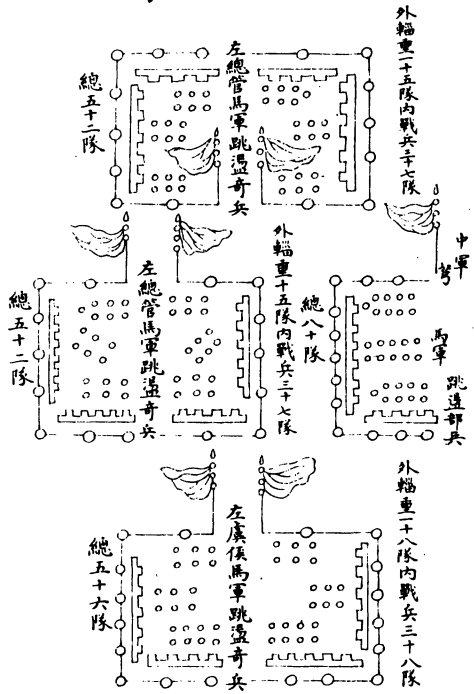 外輜重一十五隊內戰兵三十七隊
左總管馬軍跳盪奇兵
總五十二隊
中軍
弩
馬軍
跳盪部兵
總八十隊
外輜重十五隊內戰兵三十七隊
左總管馬軍跳盪奇兵
總五十二隊
外輜重一十八隊內戰兵三十八隊
左虞候馬軍跳盪奇兵
總五十六隊